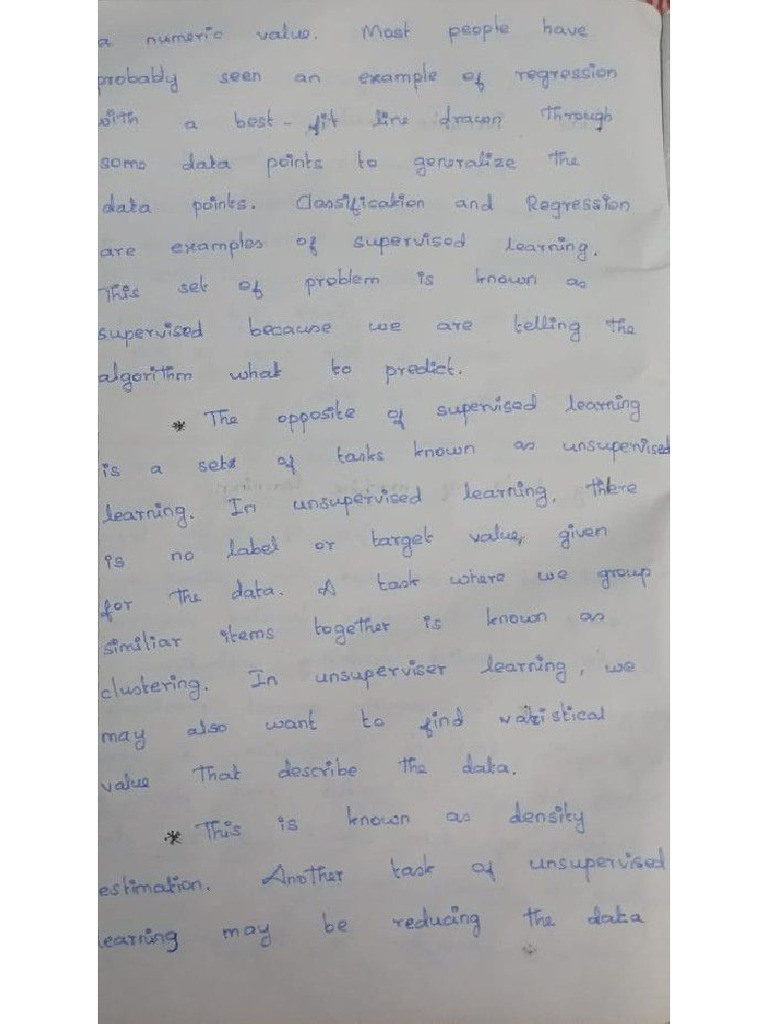 a numeric value. Most people have
probably seen an example of regression
with a best - fit line dracon Through
some data points to generalize the
data points. Classification and Regression
are examples of supervised learning.
This set of problem is known as
supervised because we are telling the
algorithm what to predict.
* The opposite of supervised learning
is a sets of tasks known as unsupervised
learning. In unsupervised learning, there
is no label or target value, given
for the data. A task where we group
similiar items together is known as
clustering. In unsuperviser learning, we
may also want to find
value That describe the data.
* This is known as density
estimation. Another task of unsupervised
learning may be reducing the data